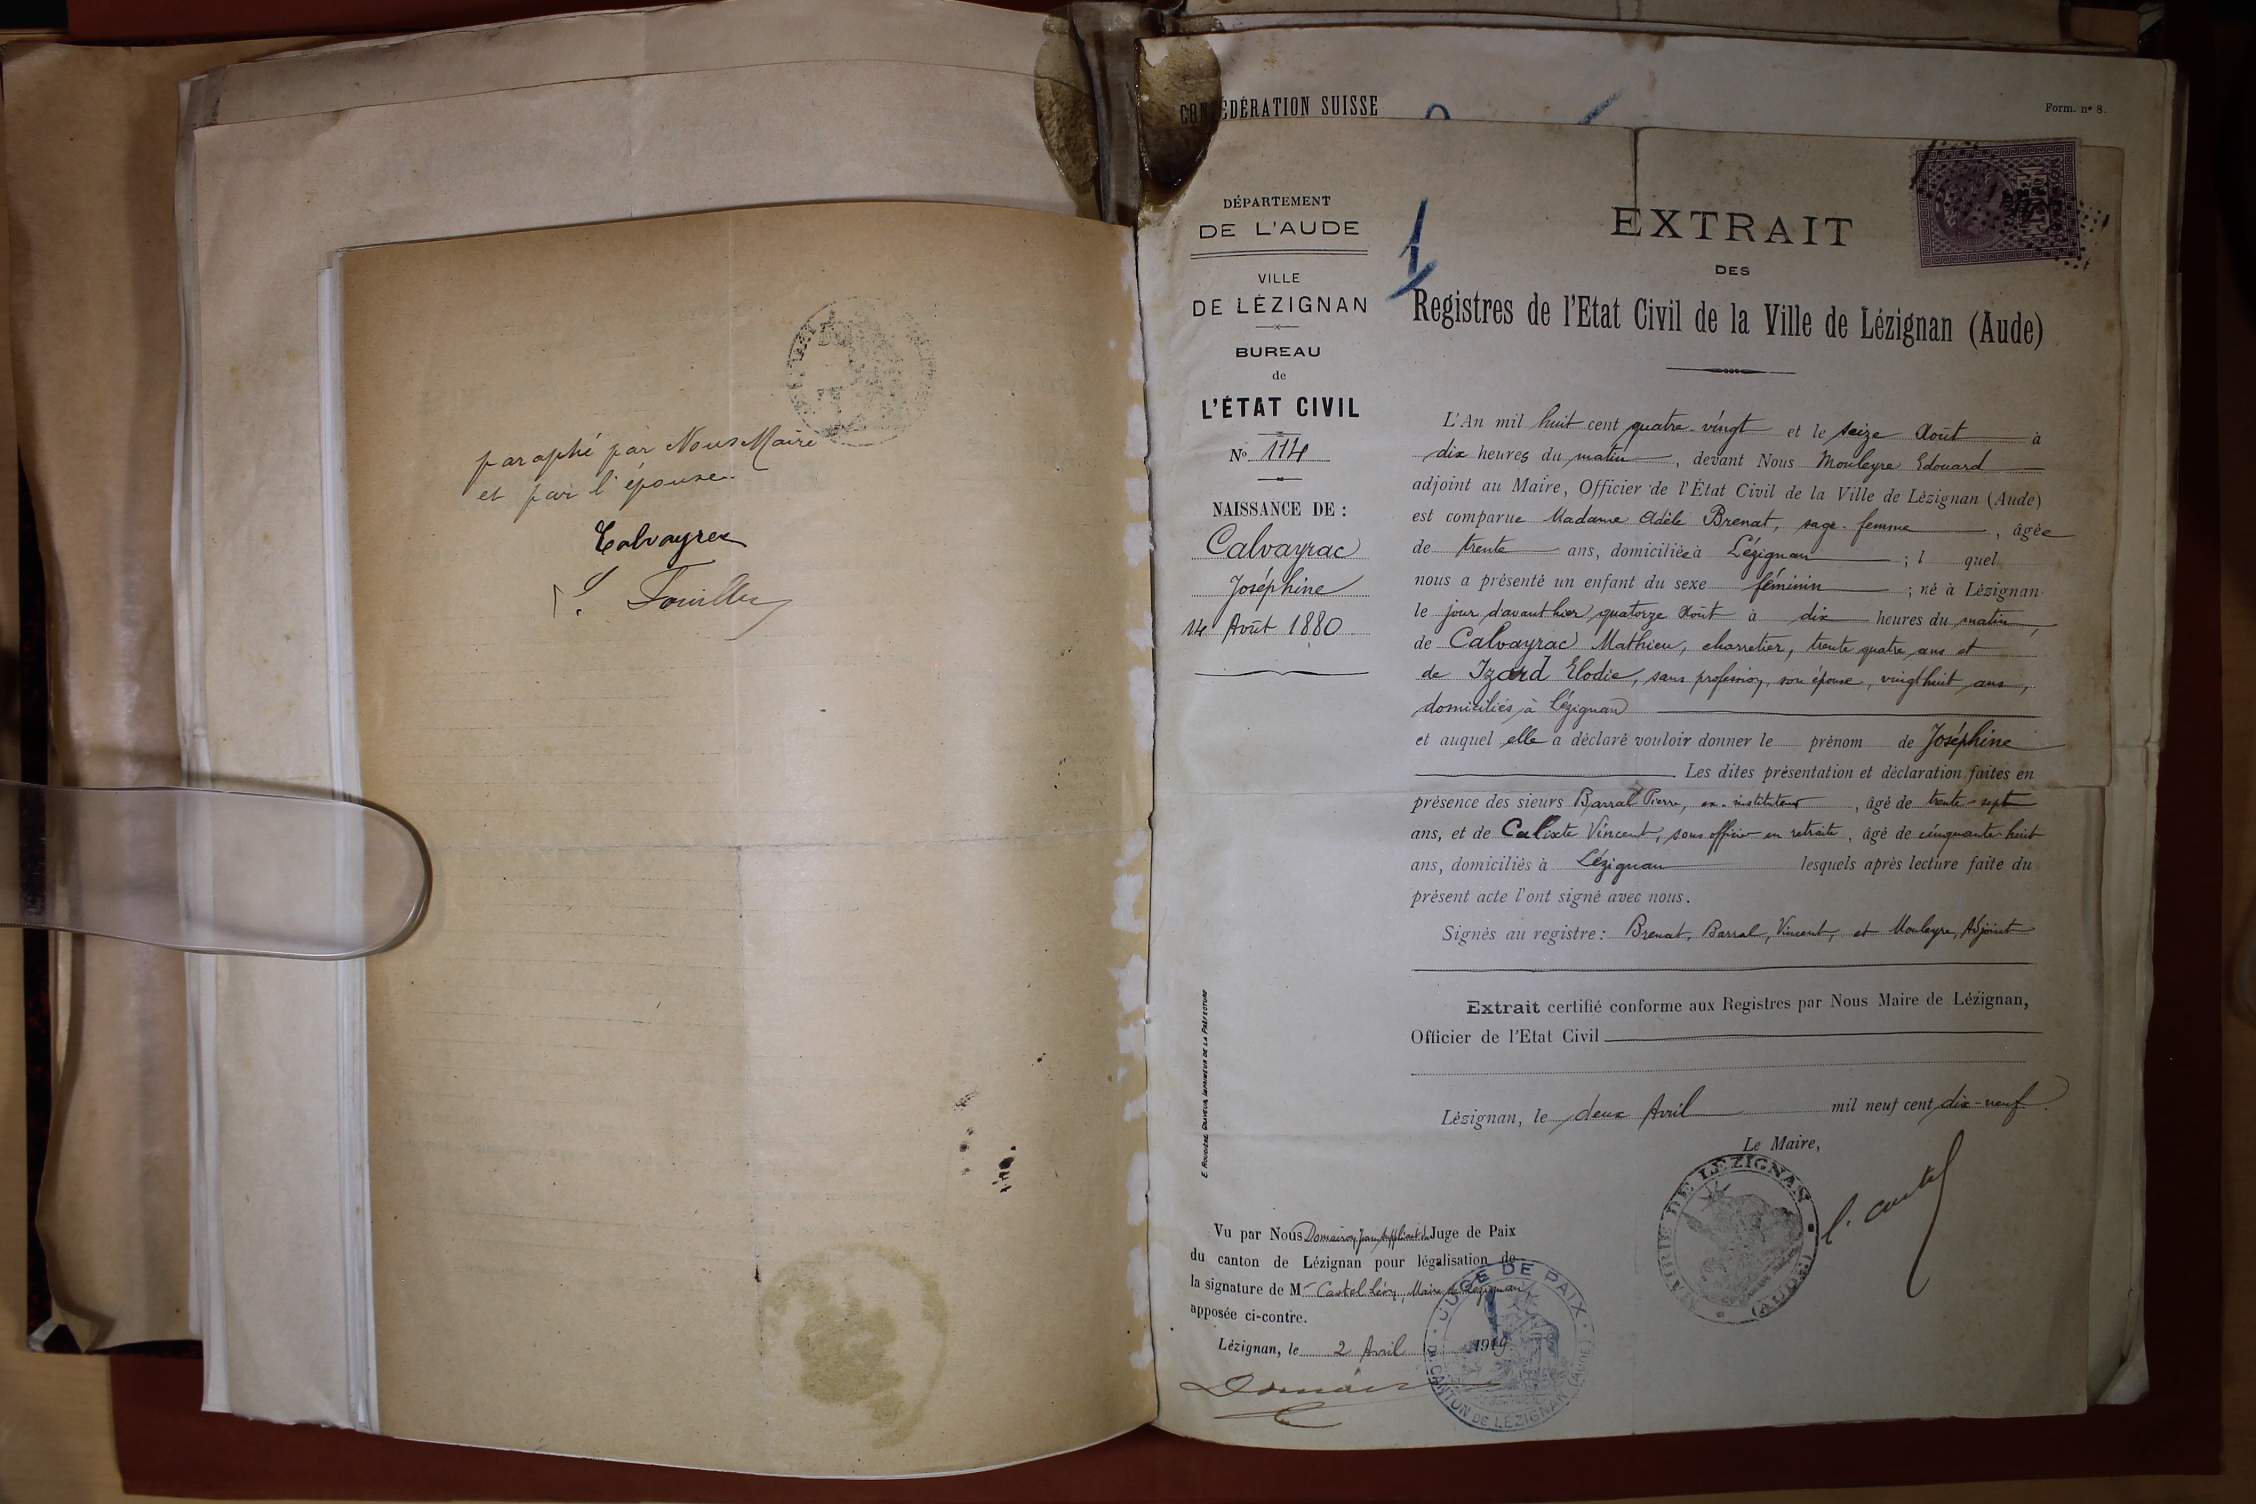 paraphé par Nous Maire
et par l'épouse.
Calvayrac
CONFÉDÉRATION SUISSE
Form. nº 8.
DÉPARTEMENT
DE L'AUDE
VILLE
DE LÉZIGNAN
BUREAU
de
L'ÉTAT CIVIL
Nº 114
NAISSANCE DE :
Calvayrac
Joséphine
14 Août 1880
1
EXTRAIT
DES
Registres de l'Etat Civil de la Ville de Lézignan (Aude)
L'An mil huit cent quatre-vingt et le seize Août à
dix heures du matin, devant Nous Mouleyre Edouard
adjoint au Maire, Officier de l'État Civil de la Ville de Lézignan (Aude)
est comparue Madame Adèle Brenat, sage-femme, âgée
de trente ans, domiciliée à Lézignan ; l quel
nous a présenté un enfant du sexe féminin ; né à Lézignan
le jour d'avant hier quatorze Août à dix heures du matin,
de Calvayrac Mathieu, charretier, trente quatre ans et
de Izard Elodie, sans profession, son épouse, vingt huit ans,
domiciliés à Lézignan
et auquel elle a déclaré vouloir donner le prénom de Joséphine
. Les dites présentation et déclaration faites en
présence des sieurs Barral Pierre, ex-instituteur, âgé de trente-sept
ans, et de Calixte Vincent, sous officier en retraite, âgé de cinquante-huit
ans, domiciliés à Lézignan lesquels après lecture faite du
présent acte l'ont signé avec nous.
Signés au registre : Brenat, Barral, Vincent, et Mouleyre, Adjoint
Extrait certifié conforme aux Registres par Nous Maire de Lézignan,
Officier de l'Etat Civil
Lézignan, le deux Avril mil neuf cent dix-neuf.
Le Maire,
MAIRIE DE LÉZIGNAN (AUDE)
L. Castel
Vu par Nous Domairon Jean Suppléant du Juge de Paix
du canton de Lézignan pour légalisation de
la signature de Mr Castel Léon, Maire de Lézignan
apposée ci-contre.
Lézignan, le 2 Avril 1919
JUGE DE PAIX
DU CANTON DE LÉZIGNAN (AUDE)